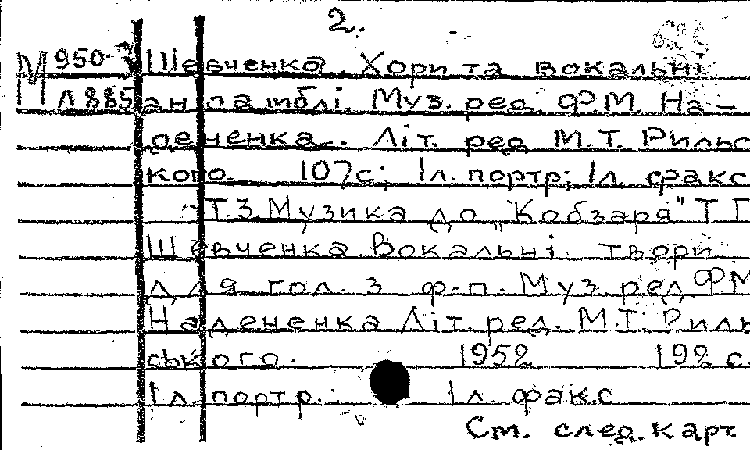 2.
М 950-3 Шевченка. Хори та вокальнi
Л 885 ансамблi. Муз. ред. Ф.М. На-
дененка. Лiт. ред М.Т. Рильс
кого. 107с; 1л. портр; 1л. факс
Т.3. Музика до "Кобзаря" Т Г
Шевченка Вокальнi твори
для гол. з ф-п. Муз ред ФМ
Надененка Лiт. ред. М.Т. Риль
ського. 1952 192 с.
1л портр.; 1л факс
Ст. след. карт